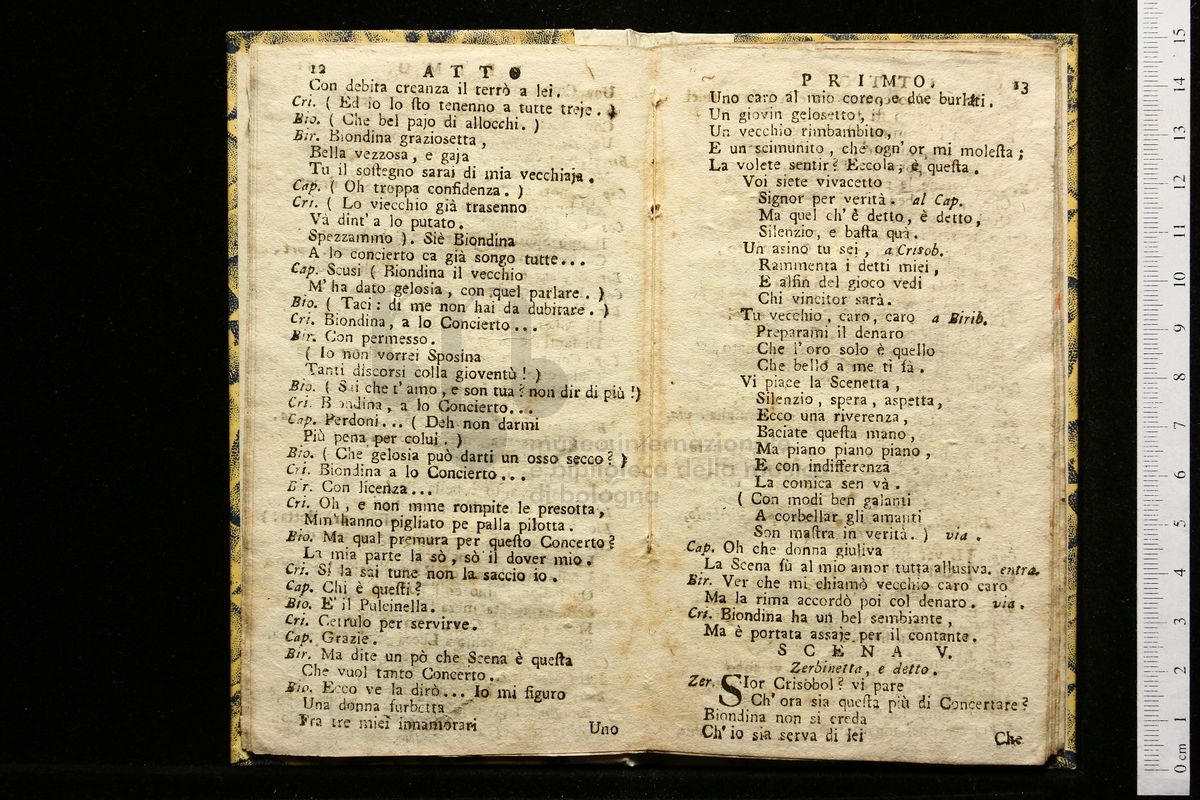 12 ATTO
Con debita creanza il terrò a lei.
Cri. ( Ed io lo sto tenenno a tutte treje. )
Bio. ( Che bel pajo di allocchi. )
Bir. Biondina graziosetta,
Bella vezzosa, e gaja
Tu il sostegno sarai di mia vecchiaja.
Cap. ( Oh troppa confidenza. )
Cri. ( Lo viecchio già trasenno
Và dint'a lo putato.
Spezzammo ). Siè Biondina
A lo concierto ca già songo tutte...
Cap. Scusi ( Biondina il vecchio
M'ha dato gelosia, con quel parlare. )
Bio. ( Taci: di me non hai da dubitare. )
Cri. Biondina, a lo Concierto...
Bir. Con permesso.
( Io non vorrei Sposina
Tanti discorsi colla gioventù! )
Bio. ( Sai che t'amo, e son tua? non dir di più!)
Cri. Biondina, a lo Concierto...
Cap. Perdoni... ( Deh non darmi
Più pena per colui. )
Bio. ( Che gelosia può darti un osso secco? )
Cri. Biondina a lo Concierto...
Bir. Con licenza...
Cri. Oh, e non mme rompite le presotta,
Mm'hanno pigliato pe palla pilotta.
Bio. Ma qual premura per questo Concerto?
La mia parte la sò, sò il dover mio.
Cri. Si la sai tune non la saccio io.
Cap. Chi è questi?
Bio. E' il Pulcinella.
Cri. Cetrulo per servirve.
Cap. Grazie.
Bir. Ma dite un pò che Scena è questa
Che vuol tanto Concerto.
Bio. Ecco ve la dirò... Io mi figuro
Una donna furbetta
Fra tre miei innamorati
Uno
PRIMTO. 13
Uno caro al mio core, e due burlati.
Un giovin gelosetto,
Un vecchio rimbambito,
E un scimunito, che ogn'or mi molesta;
La volete sentir? Eccola, è questa.
Voi siete vivacetto
Signor per verità. al Cap.
Ma quel ch'è detto, è detto,
Silenzio, e basta quà.
Un asino tu sei, a Crisob.
Rammenta i detti miei,
E alfin del gioco vedi
Chi vincitor sarà.
Tu vecchio, caro, caro a Birib.
Preparami il denaro
Che l'oro solo è quello
Che bello a me ti fà.
Vi piace la Scenetta,
Silenzio, spera, aspetta,
Ecco una riverenza,
Baciate questa mano,
Ma piano piano piano,
E con indifferenza
La comica sen và.
( Con modi ben galanti
A corbellar gli amanti
Son mastra in verità. ) via.
Cap. Oh che donna giuliva
La Scena fù al mio amor tutta allusiva. entra.
Bir. Ver che mi chiamò vecchio caro caro
Ma la rima accordò poi col denaro. via.
Cri. Biondina ha un bel sembiante,
Ma è portata assaje per il contante.
SCENA V.
Zerbinetta, e detto.
Zer. SIor Crisobol? vi pare
Ch'ora sia questa più di Concertare?
Biondina non si creda
Ch'io sia serva di lei
Che
museo internazionale
e biblioteca della musica
di bologna
0 cm 1 2 3 4 5 6 7 8 9 10 11 12 13 14 15